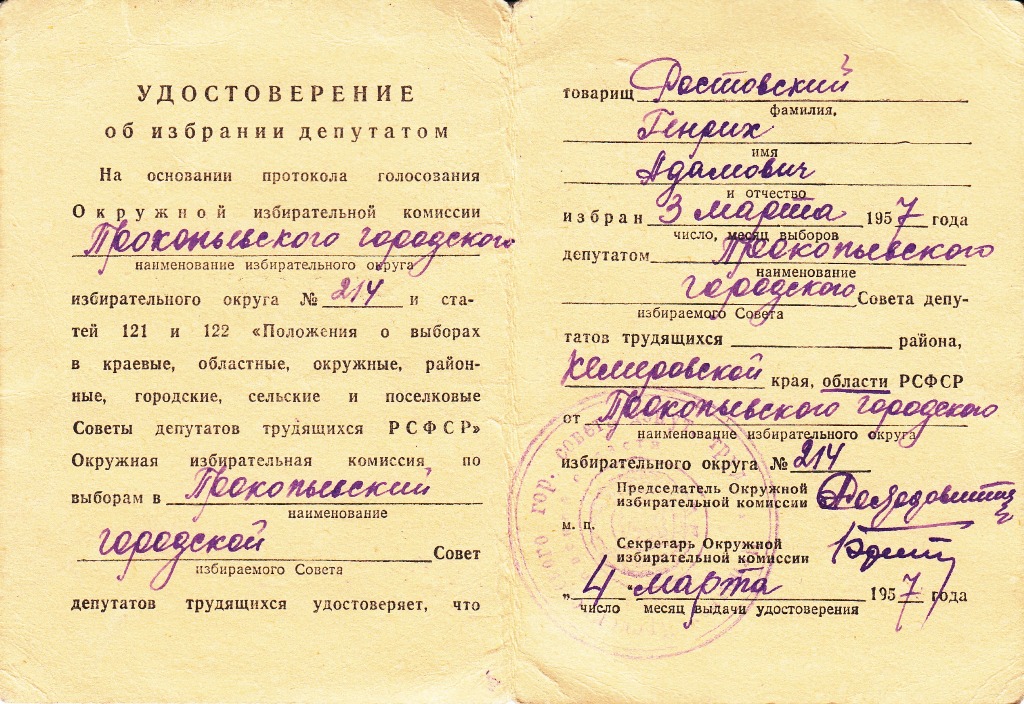 УДОСТОВЕРЕНИЕ
об избрании депутатом
На основании протокола голосования
Окружной избирательной комиссии
Прокопьевского городского
наименование избирательного округа
избирательного округа № 214 и ста-
тей 121 и 122 «Положения о выборах
в краевые, областные, окружные, район-
ные, городские, сельские и поселковые
Советы депутатов трудящихся РСФСР»
Окружная избирательная комиссия по
выборам в Прокопьевский
наименование
городской Совет
избираемого Совета
депутатов трудящихся удостоверяет, что
товарищ Ростовский
фамилия,
Генрих
имя
Адамович
и отчество
избран 3 марта 1957 года
число, месяц выборов
депутатом Прокопьевского
наименование
городского Совета депу-
избираемого Совета
татов трудящихся района,
Кемеровской края, области РСФСР
от Прокопьевского городского
наименование избирательного округа
избирательного округа № 214
Председатель Окружной
избирательной комиссии
м. п.
Секретарь Окружной
избирательной комиссии
„ 4 " марта 1957 года
число месяц выдачи удостоверения
ого гор. совета депут. тру